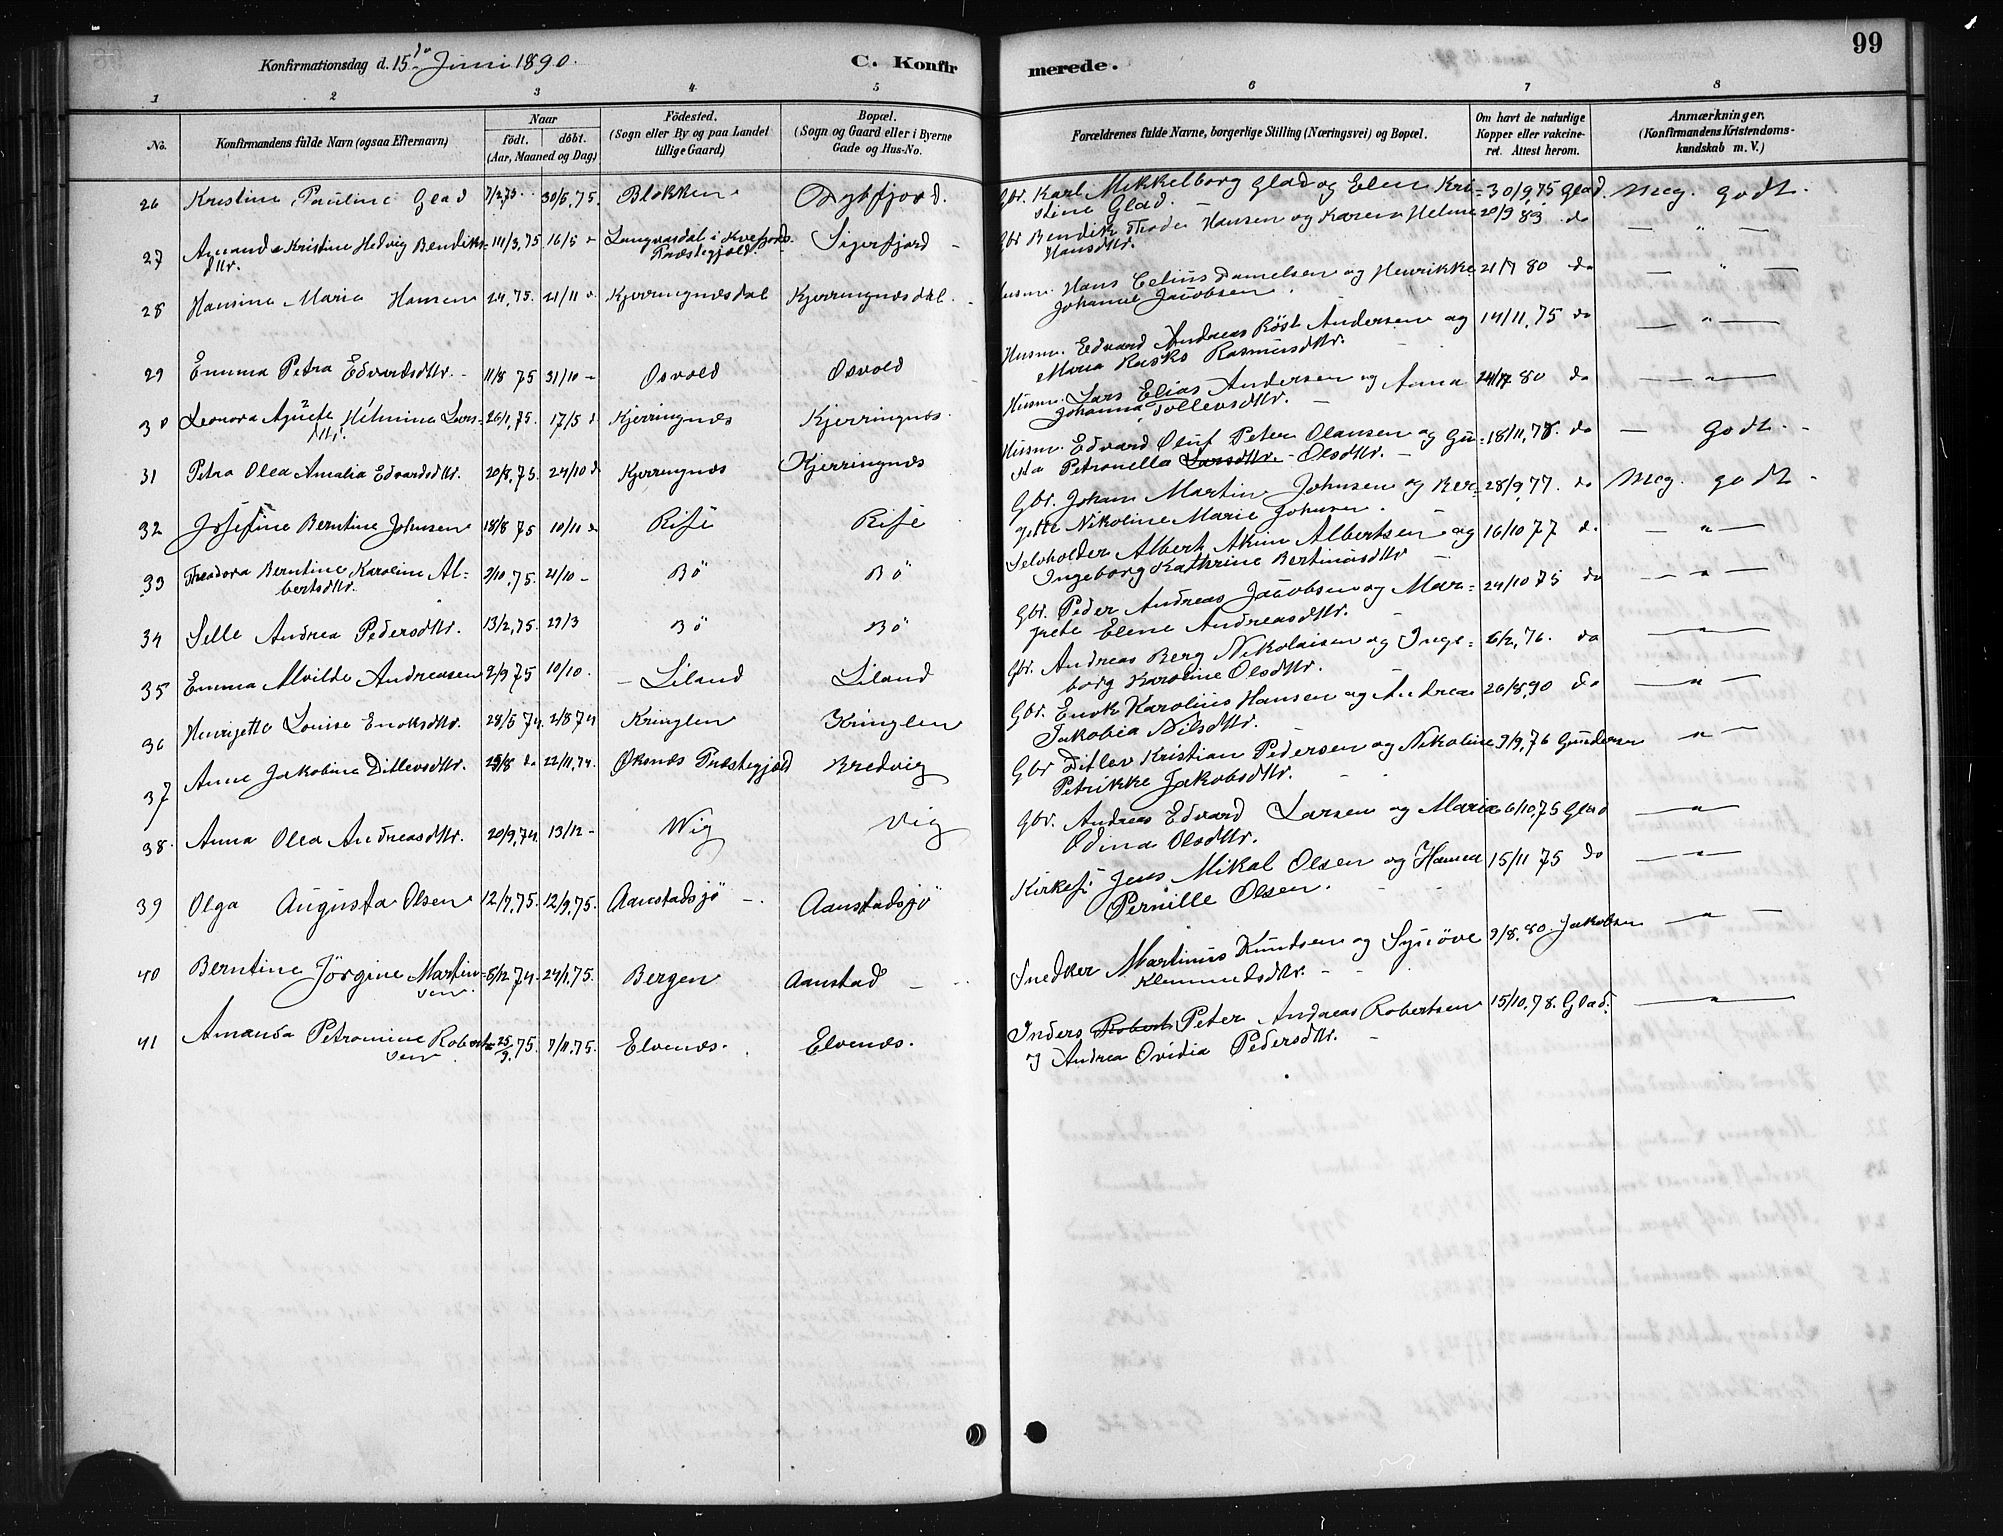 99
Konfirmationsdag d. 15de Juni 1890.
C. Konfirmerede.
1 2 3 4 5 6 7 8
No.
Konfirmandens fulde Navn (ogsaa Efternavn)
Naar
födt. döbt.
(Aar, Maaned og Dag)
Födested.
(Sogn eller By og paa Landet
tillige Gaard)
Bopæl.
(Sogn og Gaard eller i Byerne
Gade og Hus-No.
Forældrenes fulde Navne, borgerlige Stilling (Næringsvei) og Bopæl.
Om havt de naturlige
Kopper eller vakcine-
ret. Attest herom.
Anmærkninger,
(Konfirmandens Kristendoms-
kundskab m. V.)
26 Kristine Pauline Glad 7/2,75. 30/5,75. Blokken Sybfjord. Gbr. Karl Mikkelborg Glad og Elen Kri- 30/9,75 Glad. Meg. godt.
stine Glad.
27 Amanda Kristine Hedvig Bendiks- 14/3,75 16/5 - Langvasdal i Kvefjords Sigerfjord - Gbr Bendik Thode Hansen og Karen Helme 20/9 83 do — " —
dtr. Præstegjæld. Hansdtr.
28 Hansine Maria Hansen 2/4,75. 21/11 - Kjerringnesdal Kjerringnesdal. Husm. Hans Celius Danielsen og Henrikke 21/7 80 do — " —
Johanne Jacobsen.
29 Emma Petra Edvardsdtr. 11/8 75 31/10 - Osvold Osvold Husm. Edvard Andreas Röst Andersen og 14/11,75 do — " —
Maria Rasmusdtr.
30 Leonora Agnete Helmina Lars- 26/1,75. 17/5 Kjerringnæs Kjerringnes. Husm. Lars Elias Andersen og Anna 24/7 80 do — " —
dtr. Johanna Tollevsdtr.
31 Petra Olea Amalia Edvardsdtr. 20/8,75. 24/10 Kjerringnæs Kjerringnæs Husm. Edvard Oluf Peter Olausen og Gu- 18/11,78. do — godt. -
sta Petronella Larsdtr. - Olsdtr. -
32 Josefine Berntine Johnsen 18/8 75 10/11 Rise Rise Gbr. Johan Martin Johnsen og Ber- 28/9,77. do Meg. godt -
gitte Nikoline Marie Johnsen.
33 Theodora Berntine Karoline Al- 2/10,75. 21/10 - Bö Bö Selvholder Albert Akim Albertsen og 16/10 77 do — " —
bertsdtr. Ingeborg Kathrine Bertinusdtr
34 Selle Andrea Pedersdtr. 13/2,75. 29/3 Bö Bö Gbr. Peder Andreas Jacobsen og Mar- 24/10 75 do — " —
grete Elene Andreasdtr.
35 Emma Alvilde Andreasen 2/9 75 10/10. Liland Liland Gbr. Andreas Berg Nikolaisen og Inge- 6/2,76. do — " —
borg Karoline Olsdtr.
36 Henrijette Louise Enoksdtr. 28/5 74 2/8 74 Kringlen Kringlen Gbr. Enok Karolius Hansen og Andrea 26/8,90 do — " —
Jakobia Nilsdtr.
37 Anne Jakobine Ditlevsdtr. 29/8 do 22/11,74. Öksnæs Præstegjæld Bredvig Gbr Ditlev Kristian Pedersen og Nikoline 3/9,76 Gundersen " —
Petrikke Jakobsdtr.
38. Anna Olea Andreasdtr. 20/9,74. 13/12 - Wig Vig Gbr. Andreas Edvard Larsen og Maria 6/10,75 Glad — " —
Odina Olsdtr.
39 Olga Augusta Olsen 12/7,75. 12/9,75. Aanstadsjö -. Aanstadsjö Kirkes. Jens Mikal Olsen og Hanna 15/11 75 do — " —
Pernille Olsen.
40 Berntine Jörgine Martin- 5/12 74. 24/1,75. Bergen Aanstad Snedker Martinus Knudsen og Synöve 9/8,80. Jakobsen — " —
sen. Klemmedsdtr.
41 Amanda Petromine Robert- 25/9,75. 7/11,75. Elvenæs. Elvenæs. Inders Robert Peter Andreas Robertsen 15/10,78. Glad. — " —
sen. Andrea Ovidia Pedersdtr.